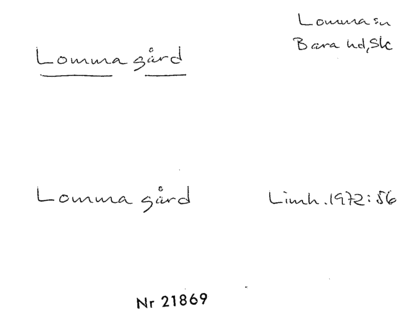 Lomma sn
Bara hd, Sk
Lomma gård
Lomma gård
Limh. 1972:56
Nr 21869